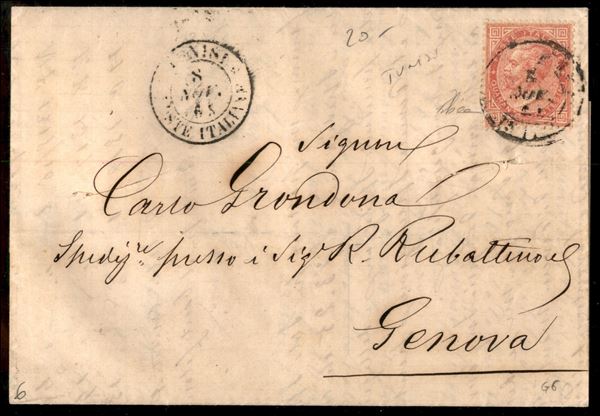 20-
TUNISI
8
NOV.
65
POSTE ITALIANE
Tunisi
Signore
Carlo Grondona
Spediz.re presso i Sig.i R. Rubattino e C.
Genova
6
G6